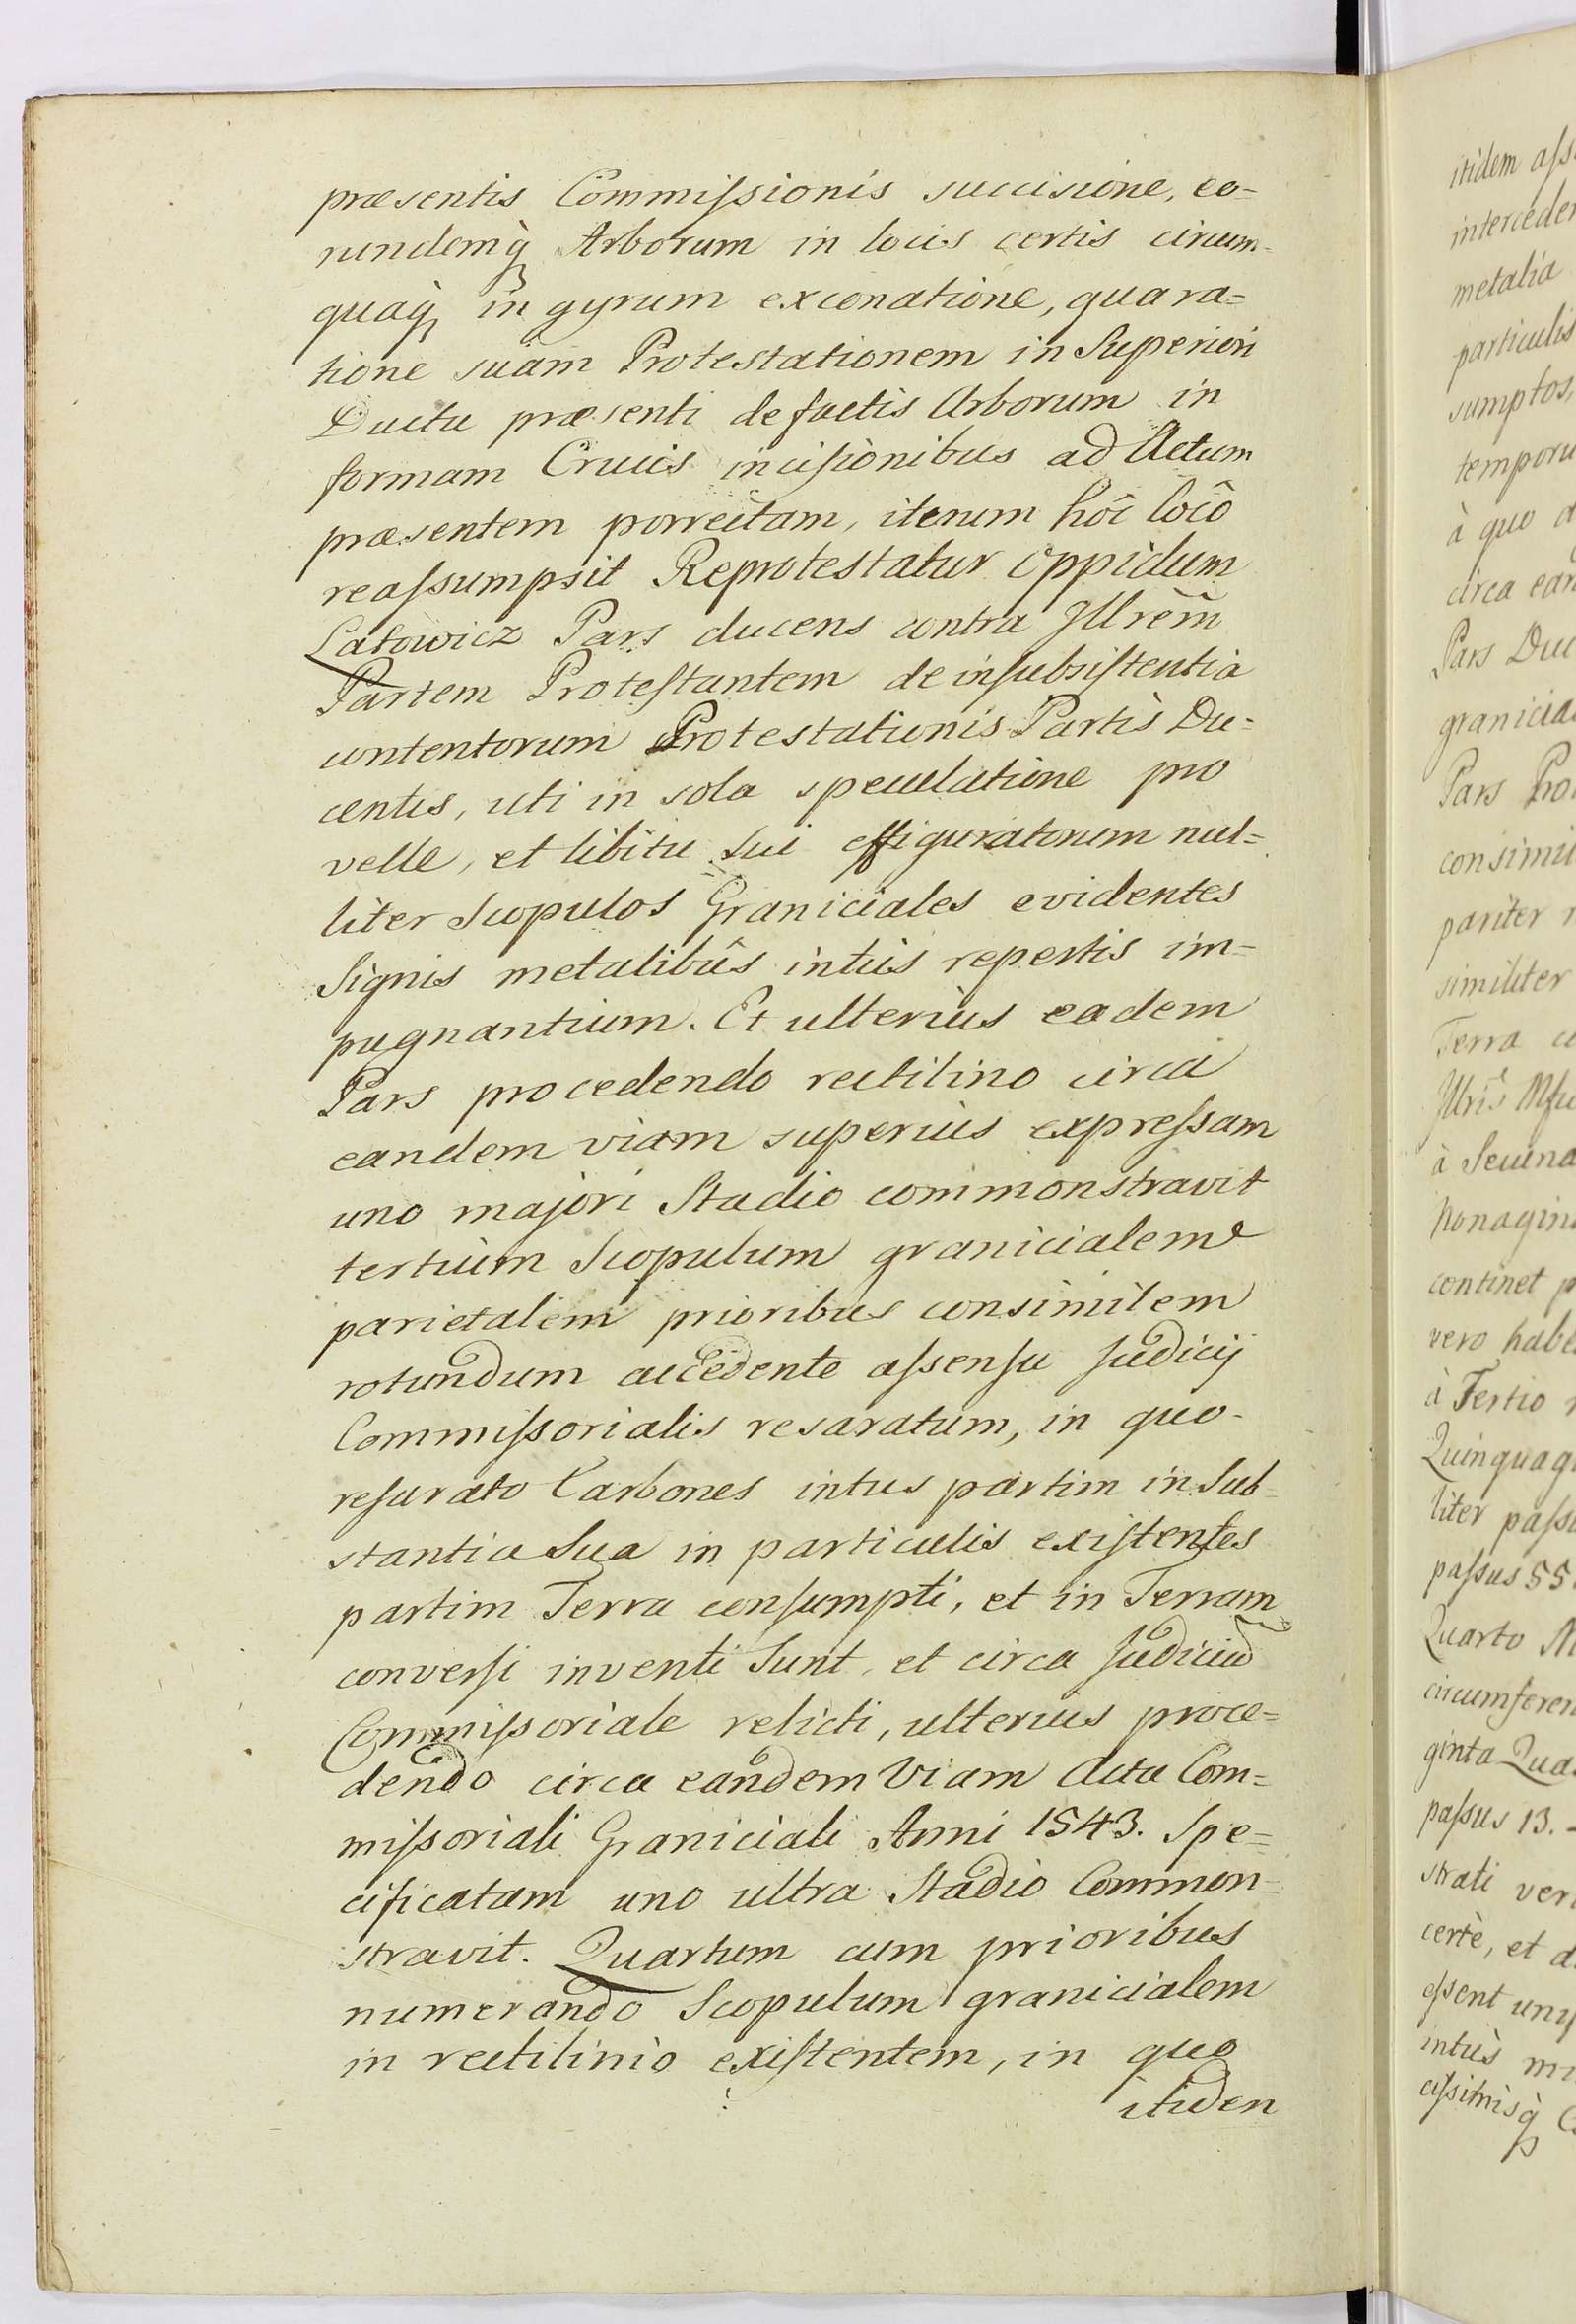 præsentis Commissionis succisione, eo=
rundemq̀ Arborum in locis certis circum-
quaq̀ in gyrum exconatione, quara=
tione suam Protestationem in Superiori
Ductu præsenti de factis Arborum in
formam Crucis incisionibus ad Actum
præsentem porrectam, iterum hôc locô
reassumpsit Reprotestatur Oppidum
Latowicz Pars ducens contra Jllrem̃
Partem Protestantem de insubsistentia
contentorum Protestationis Partis Du=
centis, uti in sola speculatione pro
velle, et libitu sui effiguratorum nul=
liter Scopulos Graniciales evidentes
Signis metalibûs intùs repertis im=
pugnantium. Et ulterius eadem
Pars procedendo rectilino circa
eandem viam superiùs expressam
uno majori Stadio commonstravit
tertium Scopulum granicialem
parietalem prioribus consimilem
rotundum accedente assensu Judicij
Commissorialis resaratum, in quo-
resarato Carbones intus partim in Sub=
stantia Sua in particulis existentes
partim Terra consumpti, et in Terram
conversi inventi Sunt, et circa Judiciũ
Commissoriale relicti, ulterius proce=
dendo circa eandem Viam Actu Com=
missoriali Graniciali Anni 1543. Spe=
cificatam uno ultra Stadio Common=
stravit. Quartum cum prioribus
numerando Scopulum granicialem
in rectilinio existentem, in quo
itidem
itidem
metalia
particulis
sumptos,
à quo
circa
Pars
Pars
pariter
similiter
Terra
à
continet
vero
à Tertio
liter
passus 55.
Quarto
ginta
passus 13.
strati
certè, et
essent
intùs